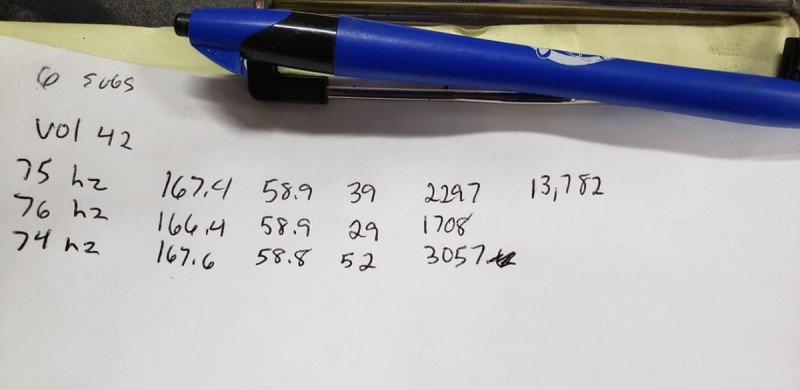 6 subs
Vol 42
75 hz 167.4 58.9 39 2297 13,782
76 hz 166.4 58.9 29 1708
74 hz 167.6 58.8 52 3057